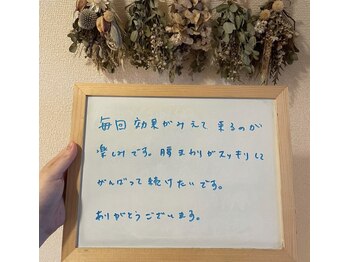 毎回効果がみえて来るのが
楽しみです。腰まわりがスッキリして
がんばって続けたいです。
ありがとうございます。